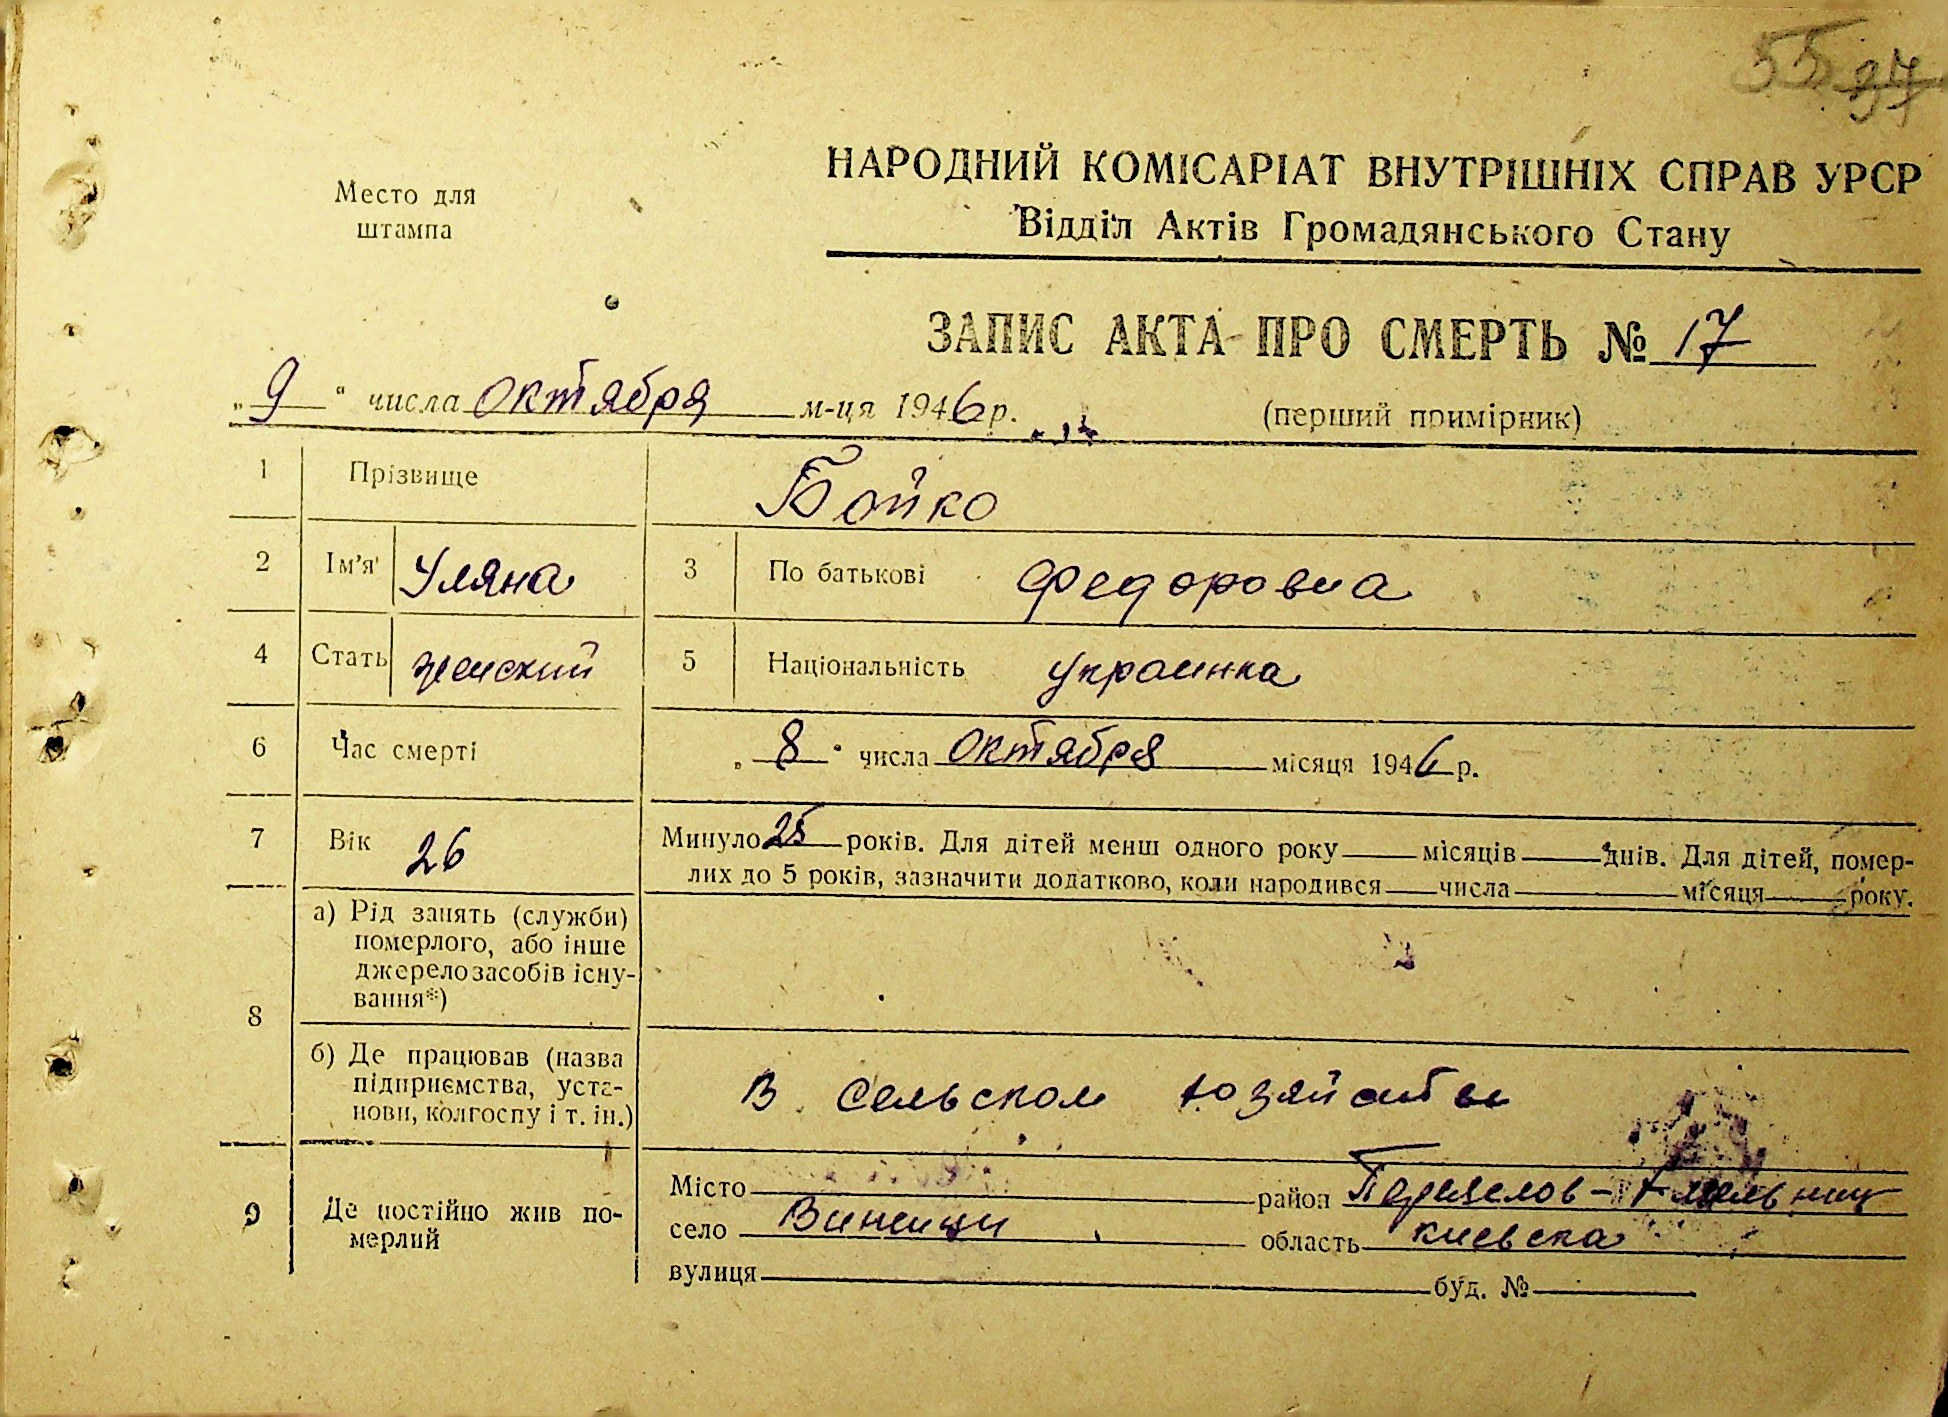 55 97
Место для
штампа
НАРОДНИЙ КОМІСАРІАТ ВНУТРІШНІХ СПРАВ УРСР
Відділ Актів Громадянського Стану
ЗАПИС АКТА ПРО СМЕРТЬ № 17
„9“ числа октября м-ця 1946 р. (перший примірник)
1 Прізвище Бойко
2 Ім'я Уляна 3 По батькові Федоровна
4 Стать женский 5 Національність украинка
6 Час смерті „8“ числа октября місяця 1946 р.
7 Вік 26 Минуло 25 років. Для дітей менш одного року місяців днів. Для дітей, помер-
лих до 5 років, зазначити додатково, коли народився числа місяця року.
8 а) Рід занять (служби)
померлого, або інше
джерело засобів існу-
вання*)
б) Де працював (назва
підприємства, уста-
нови, колгоспу і т. ін.)
В сельском хозяйстве
9 Де постійно жив по-
мерлий
Місто район Переяслов-Хмельниц
село Виненци область киевска
вулиця буд. №